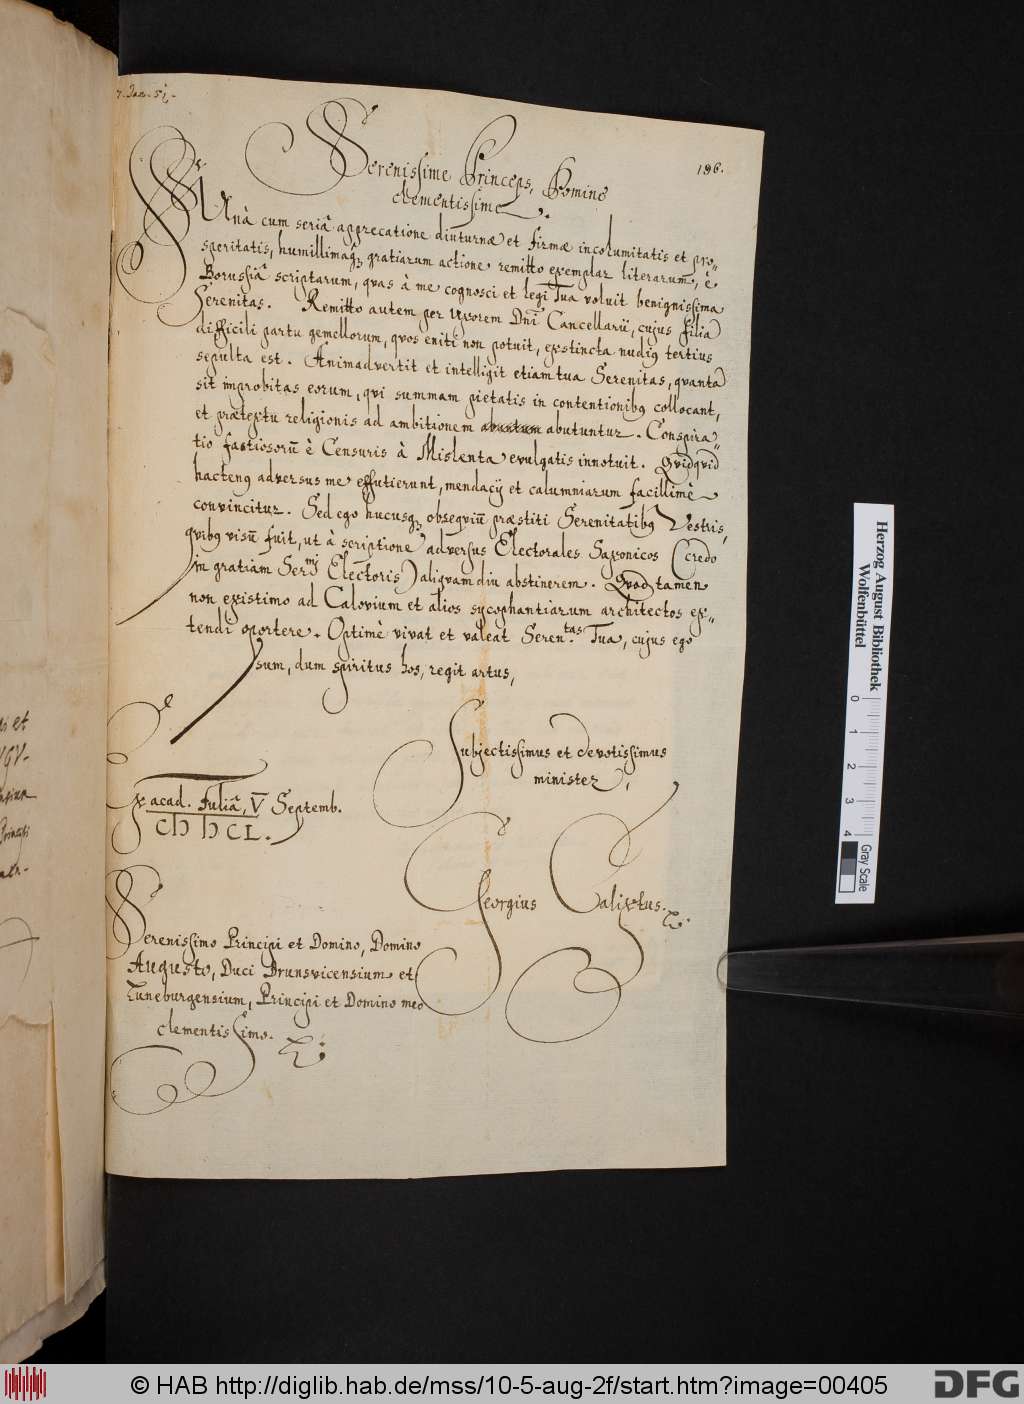 7. Jan. 51.
196.
Serenissime Princeps, Domine
clementissime.
Unà cum seriâ apprecatione diuturnæ et firmæ incolumitatis et pro-
speritatis, humillimaq; gratiarum actione remitto exemplar literarum, è
Borussiâ scriptarum, quas à me cognosci et legi Tua voluit benignissima
Serenitas. Remitto autem per Uxorem Dnī Cancellarii, cujus filia
difficili partu gemellorum, quos eniti non potuit, exstincta nudiq tertius
sepulta est. Animadvertit et intelligit etiam tua Serenitas, quanta
sit improbitas eorum, qui summam pietatis in contentionibq collocant,
et prætextu religionis ad ambitionem abutuntur. Conspira-
tio factiosorū è Censuris à Mislenta evulgatis innotuit. Quidquid
hactenq adversus me effutierunt, mendacij et calumniarum facillimè
convincitur. Sed ego hucusq; obsequiū præstiti Serenitatibq Vestris,
quibq visū fuit, ut à scriptione adversus Electorales Saxonicos (credo
in gratiam Ser.mi Electoris) aliquam diu abstinerem. Quod tamen
non existimo ad Calovium et alios sycophantiarum architectos ex-
tendi oportere. Optimè vivat et valeat Seren.tas Tua, cujus ego
sum, dum spiritus hos, regit artus,
Subjectissimus et devotissimus
minister,
Ex acad. Juliâ, V Septemb.
CIↃ IↃ CL.
Georgius Calixtus.
Serenissimo Principi et Domino, Domino
Augusto, Duci Brunsvicensium et
Luneburgensium, Principi et Domino meo
clementissimo.
Herzog August Bibliothek
Wolfenbüttel
0 1 2 3 4
Gray Scale
© HAB http://diglib.hab.de/mss/10-5-aug-2f/start.htm?image=00405
DFG